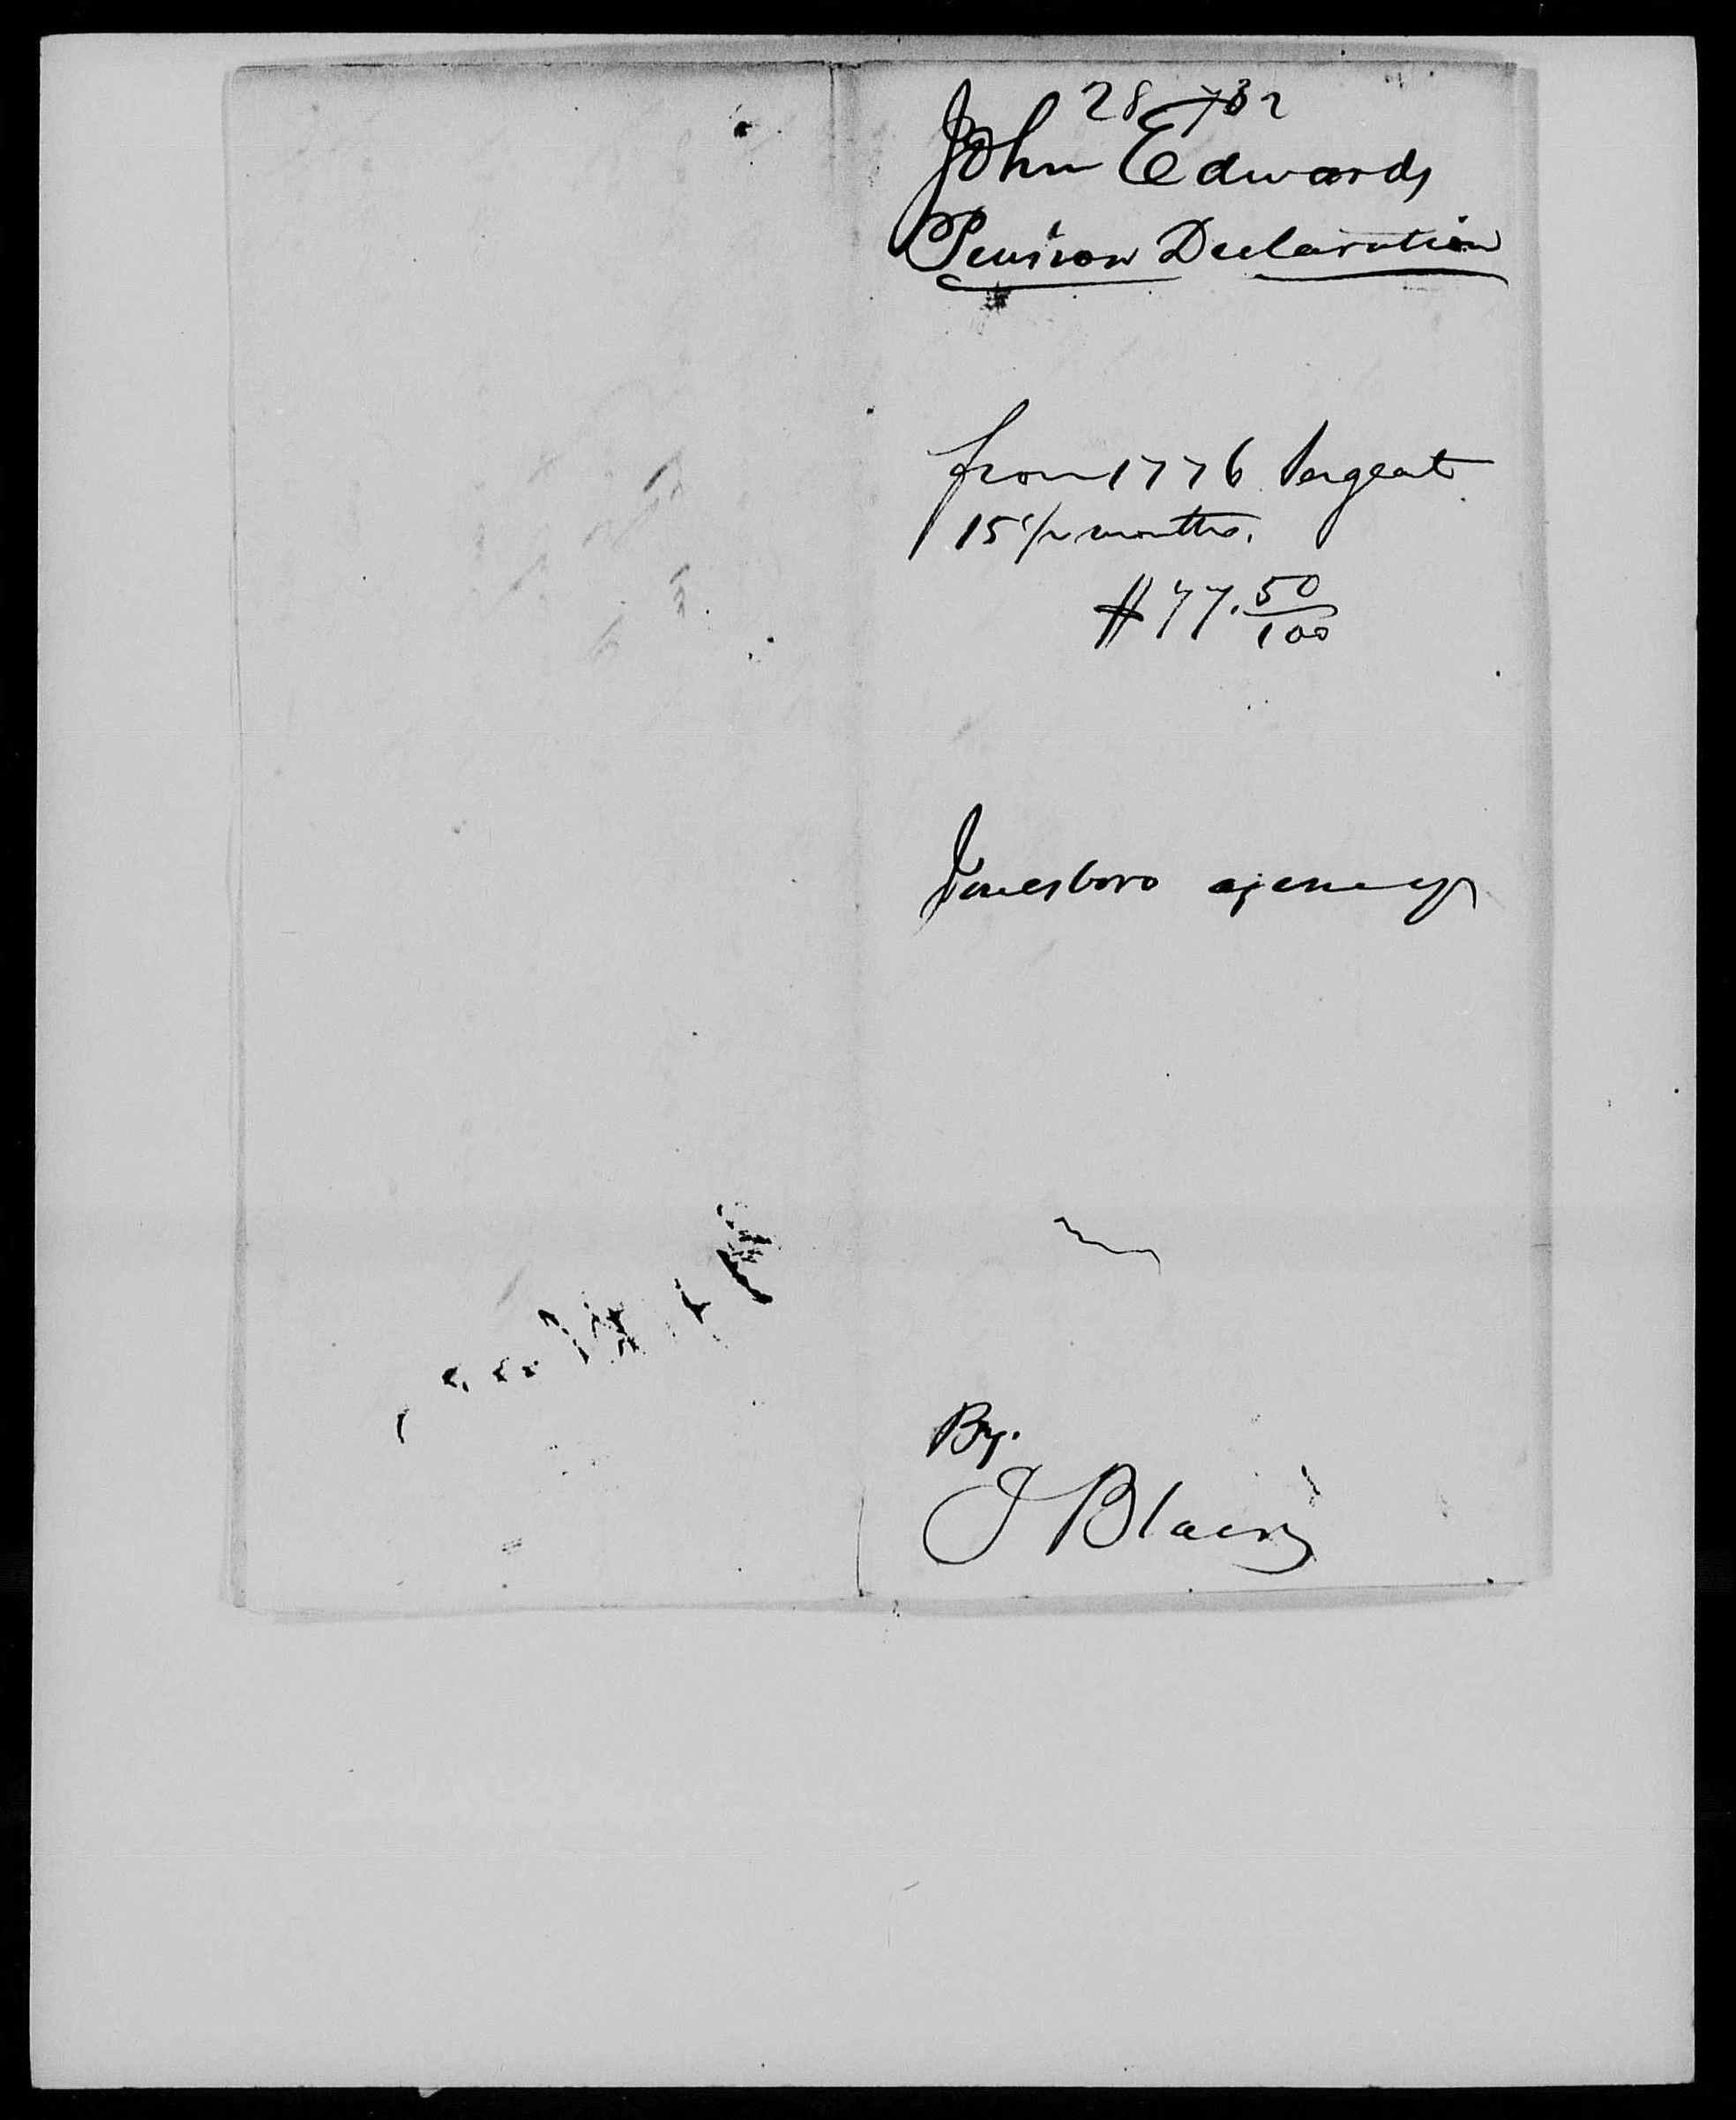 28732
John Edwards
Pension Declaration
from 1776 Sergeat
15 1/2 months.
$77.50/100
Jonesboro agency
By.
J Blair